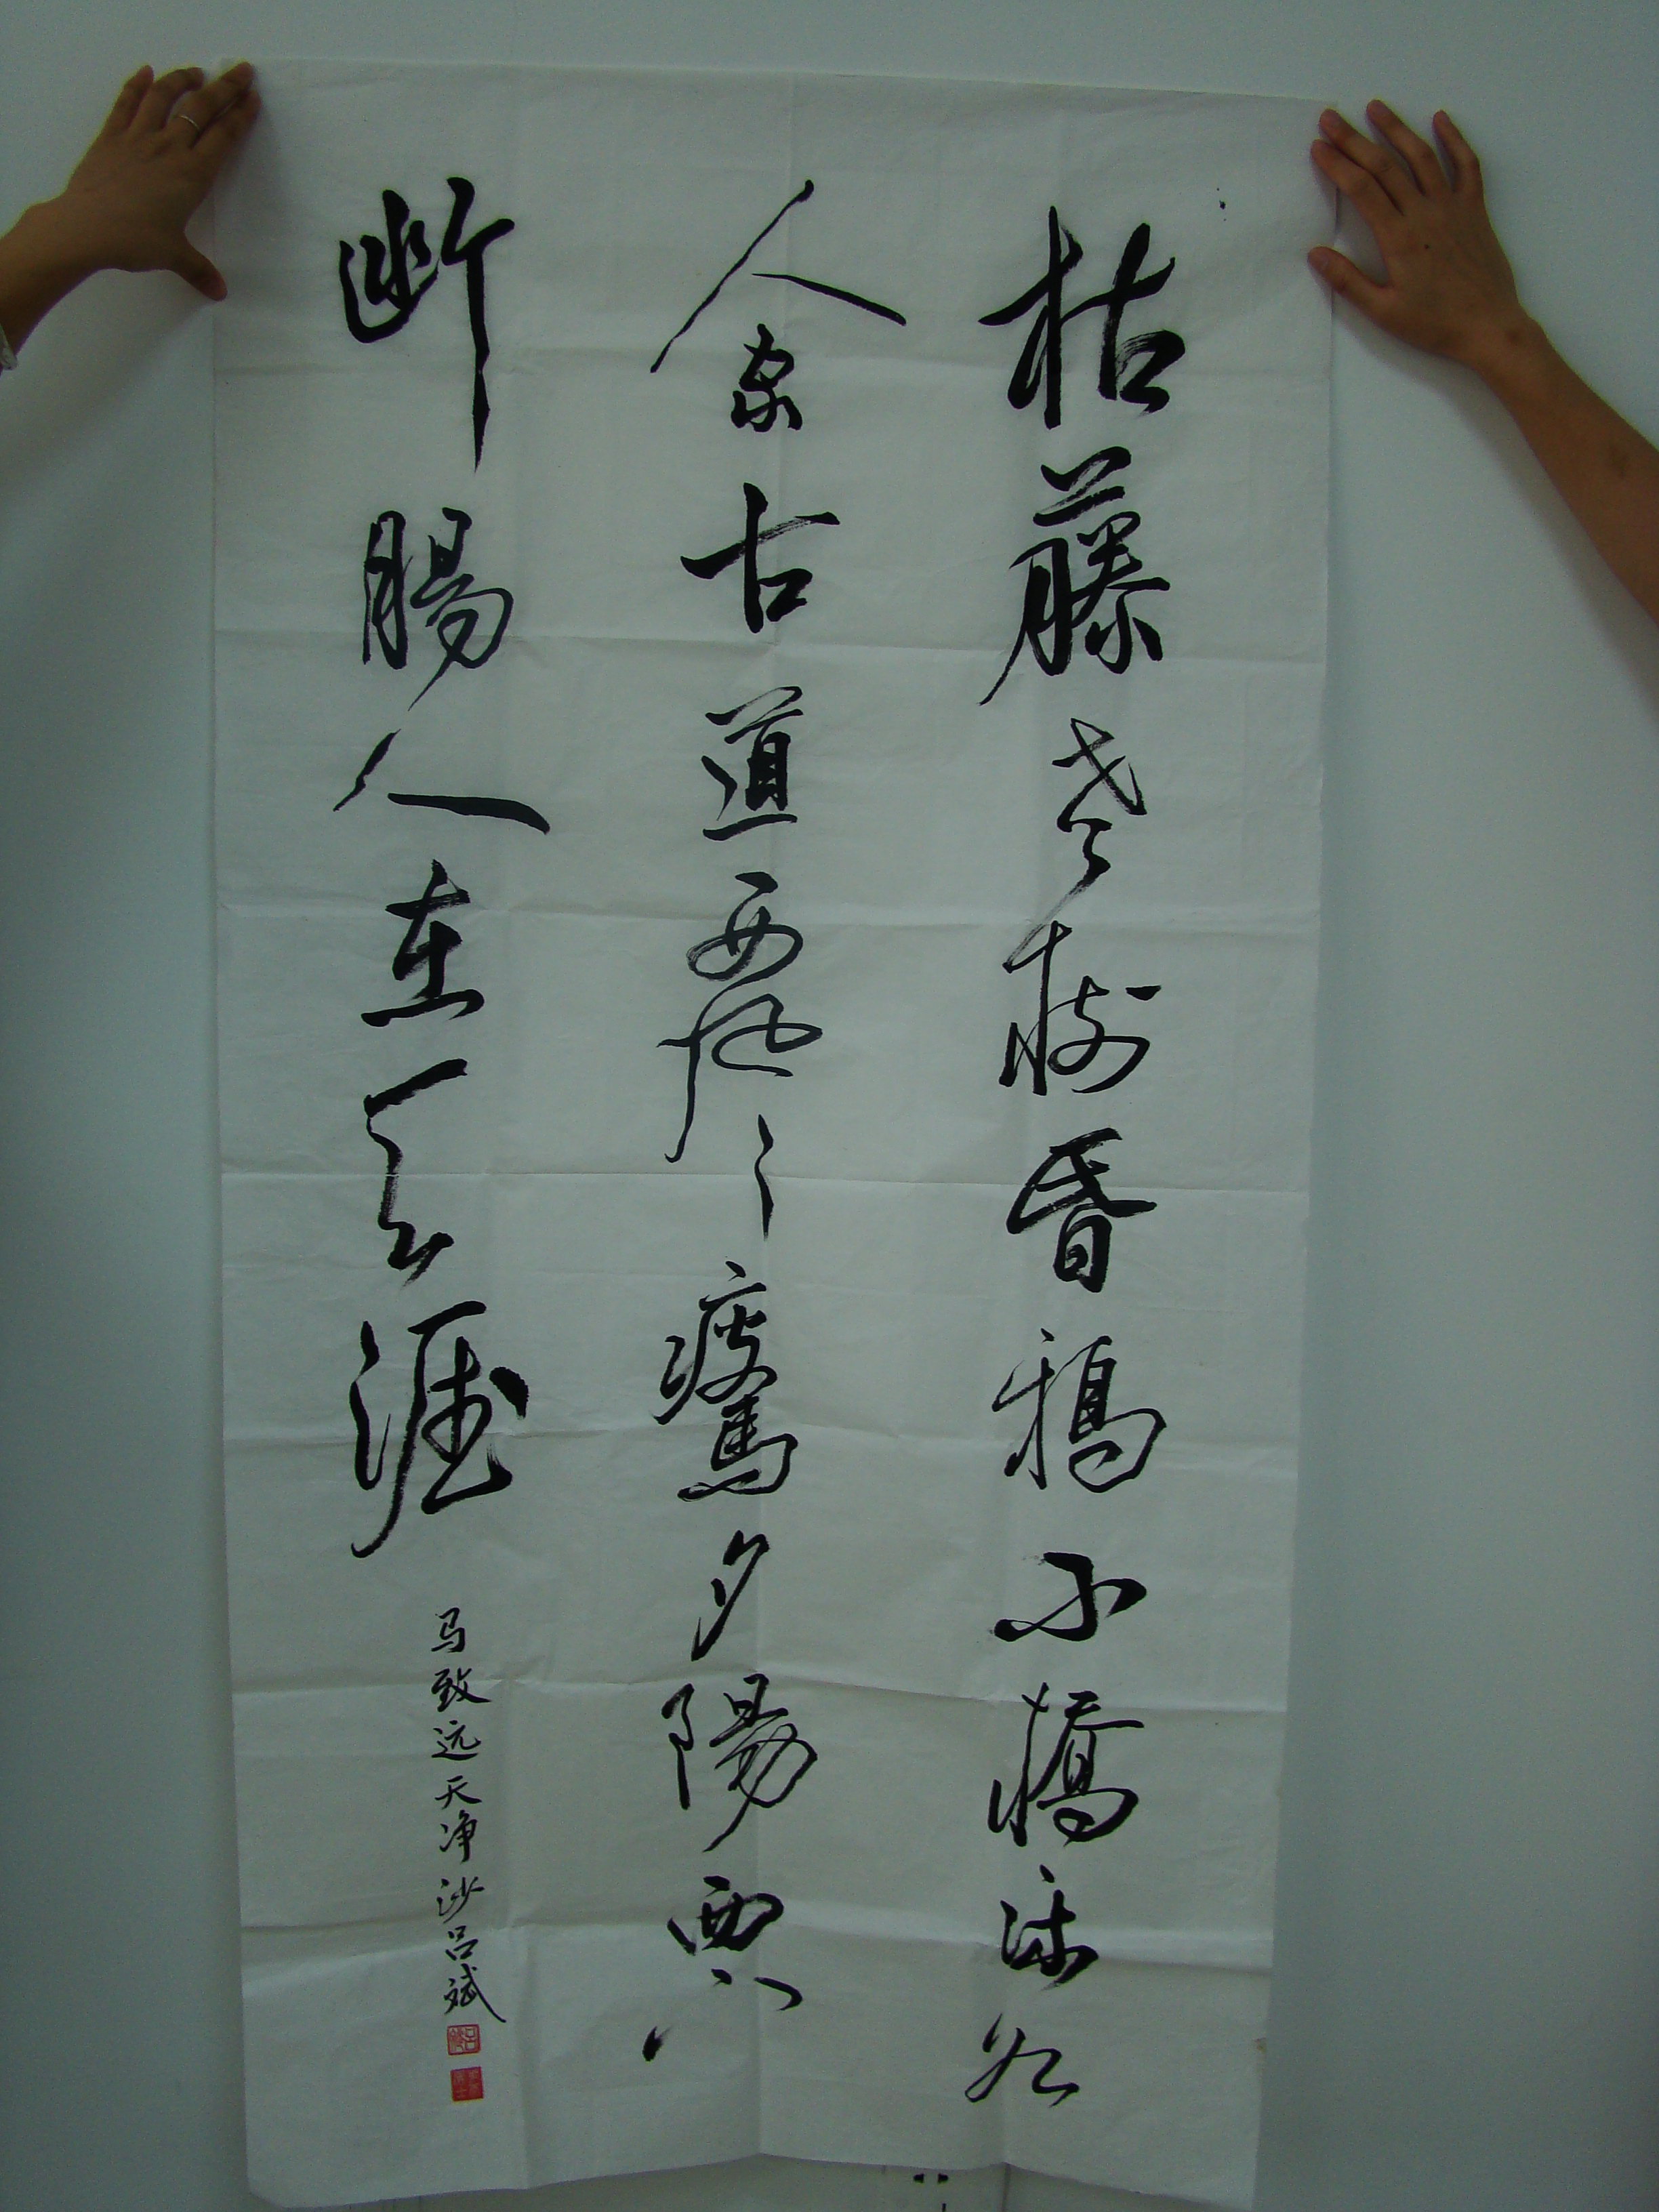 枯藤老樹昏鴉小橋流水
人家古道西風瘦馬夕陽西下
断腸人在天涯
马致远天净沙吕斌